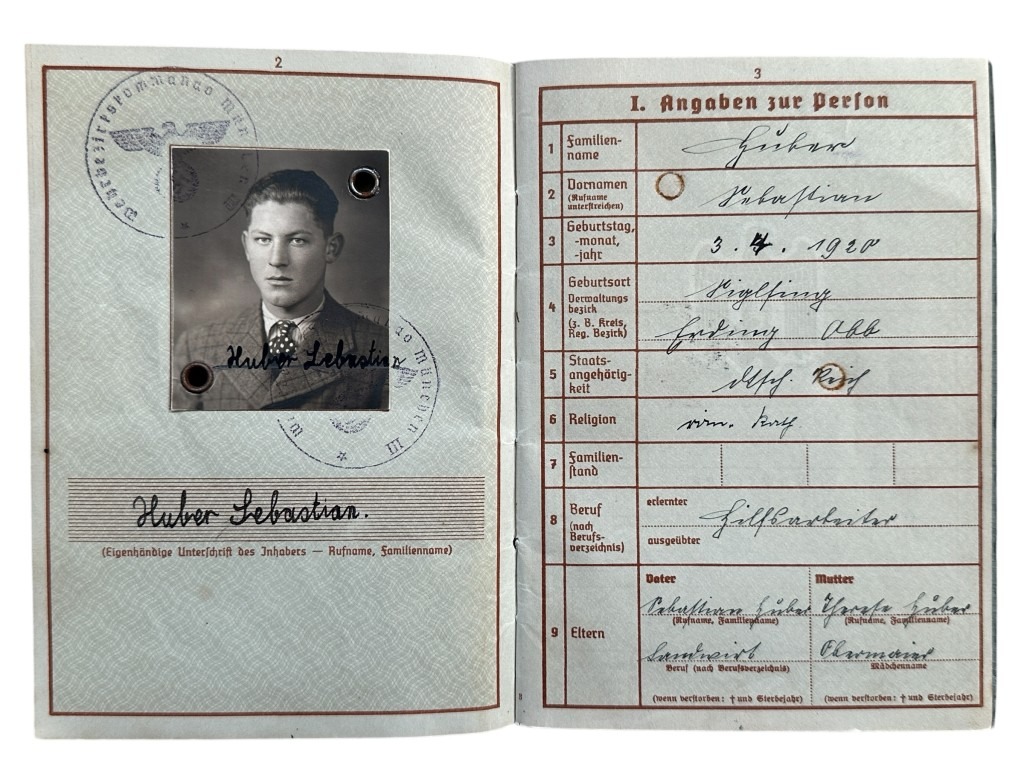 2
Wehrbezirkskommando München III
Huber Sebastian
Huber Sebastian.
(Eigenhändige Unterschrift des Inhabers — Rufname, Familienname)
3
I. Angaben zur Person
1 Familien-
name
Huber
2 Vornamen
(Rufname
unterstreichen)
Sebastian
3 Geburtstag,
-monat,
-jahr
3. 4. 1920
4 Geburtsort
Verwaltungs
bezirk
(z. B. Kreis,
Reg. Bezirk)
Siglfing
Erding Obb
5 Staats-
angehörig-
keit
dtsch. Reich
6 Religion
röm. kath.
7 Familien-
stand
8 Beruf
(nach
Berufs-
verzeichnis)
erlernter
Hilfsarbeiter
ausgeübter
9 Eltern
Vater Mutter
Sebastian Huber Therese Huber
(Rufname, Familienname) (Rufname, Familienname)
Landwirt Obermaier
Beruf (nach Berufsverzeichnis) Mädchenname
(wenn verstorben: † und Sterbejahr) (wenn verstorben: † und Sterbejahr)